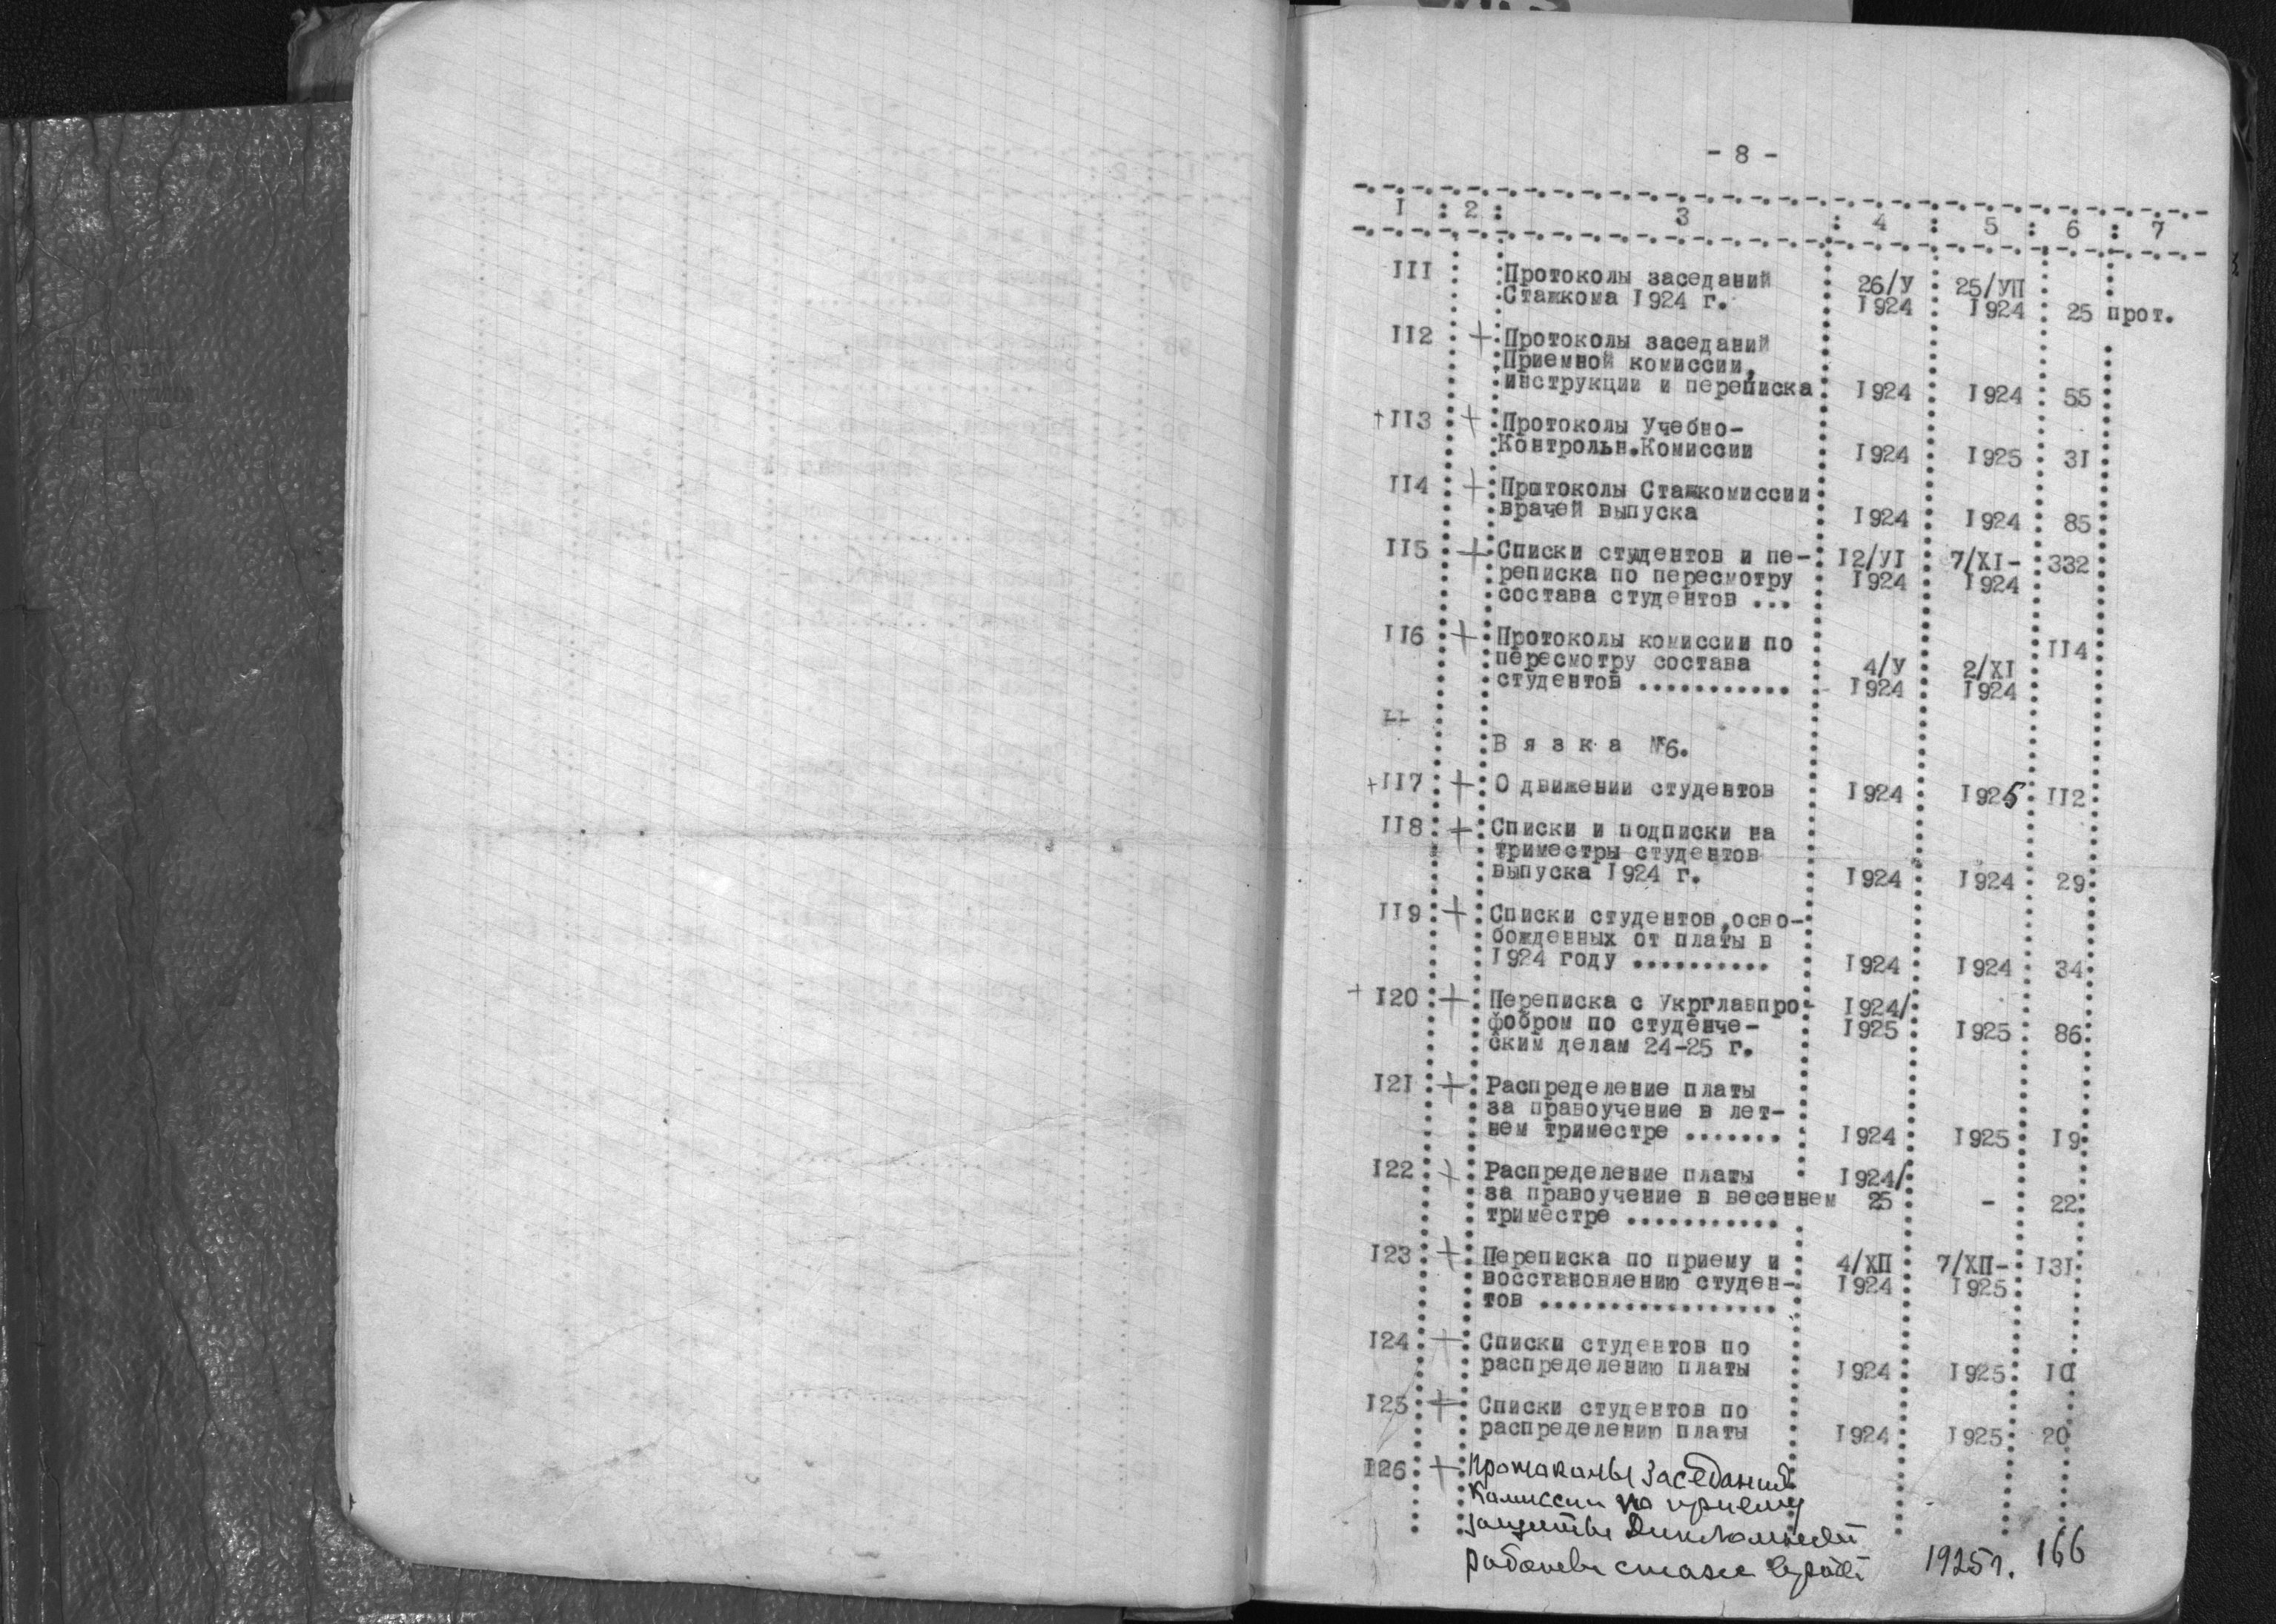 - 8 -
I : 2 : 3 : 4 : 5 : 6 : 7
III Протоколы заседаний 26/У 25/УП
Стажкома 1924 г. 1924 1924 25 прот.
II2 + Протоколы заседаний
Приемной комиссии,
инструкции и переписка 1924 1924 55
+ II3 + Протоколы Учебно-
Контрольн.Комиссии 1924 1925 31
II4 + Пратоколы Стажкомиссии
врачей выпуска 1924 1924 85
II5 + Списки студентов и пе- I2/УI 7/XI- 332
реписка по пересмотру 1924 1924
состава студентов ...
II6 + Протоколы комиссии по II4
пересмотру состава 4/У 2/XI
студентов ........... 1924 1924
II
В я з к а №6.
+ II7 + О движении студентов 1924 1925 II2
II8 + Списки и подписки на
триместры студентов
выпуска 1924 г. 1924 1924 29
II9 + Списки студентов,осво-
божденных от платы в
1924 году .......... 1924 1924 34
+ I20 + Переписка с Укрглавпро- 1924/
фобром по студенче- 1925 1925 86
ским делам 24-25 г.
I2I + Распределение платы
за правоучение в лет-
нем триместре ....... 1924 1925 I9
I22 + Распределение платы 1924/
за правоучение в весеннем 25 - 22
триместре ...........
I23 + Переписка по приему и 4/ХП 7/ХП- I3I
восстановлению студен- 1924 1925
тов .................
I24 + Списки студентов по
распределению платы 1924 1925 I0
I25 + Списки студентов по
распределению платы 1924 1925 20
I26 + Протоколы заседаний
Комиссии по приему
защиты Дипломной
работы стажа врачей 1925г. 166